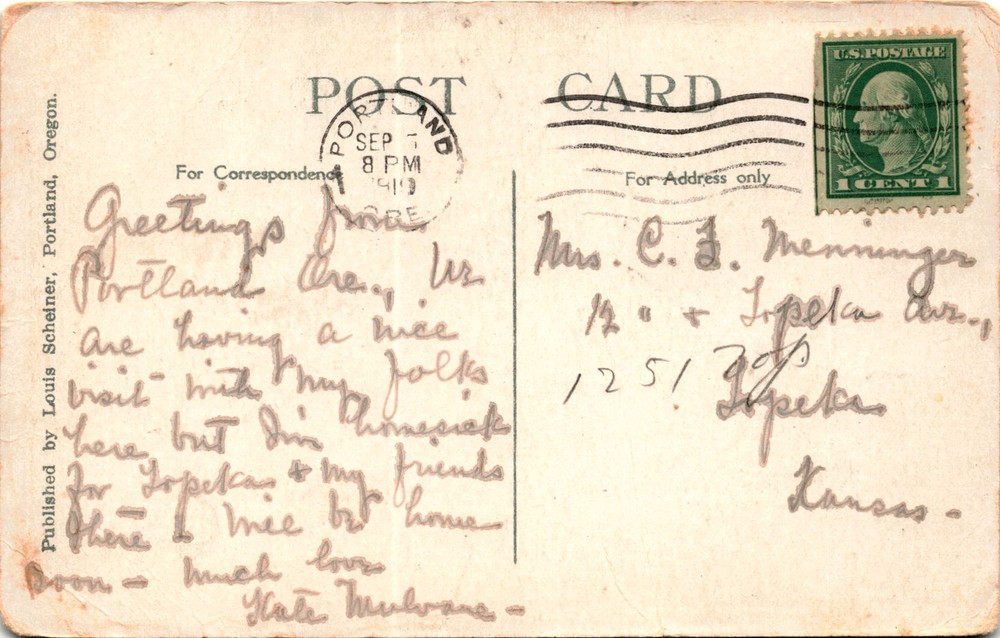 POST CARD
U.S. POSTAGE
1 CENT 1
PORTLAND
SEP 5
8 PM
1910
ORE
For Correspondence
For Address only
Published by Louis Scheiner, Portland, Oregon.
Greetings from
Portland Ore., We
are having a nice
visit with my folks
here but I'm homesick
for Topeka & my friends
there & will be home
soon - Much love
Kate Mulvane -
Mrs. C. F. Menninger
12 " + Topeka Ave.,
1251 Top
Topeka
Kansas -